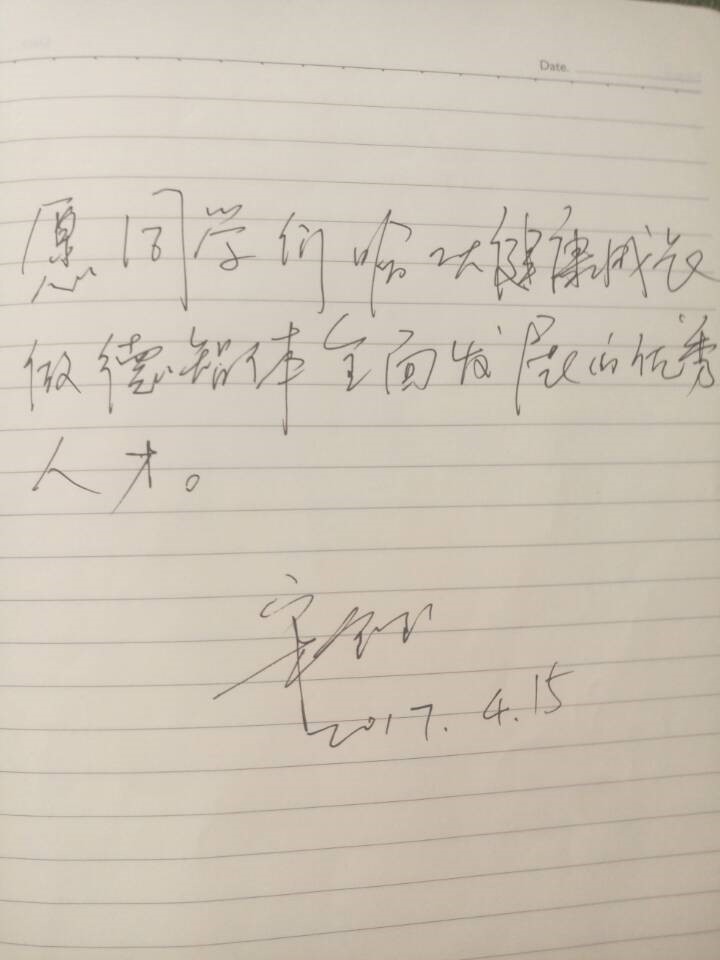 Date.
愿同学们 健康成长
做德智体全面发展的优秀
人才。
2017.4.15